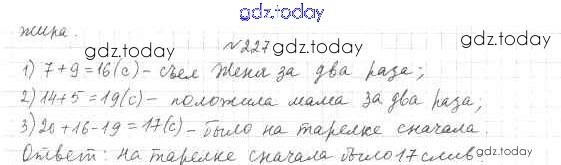 gdz.today
жира.
gdz.today №227 gdz.today
1) 7+9=16(с) – съел Женя за два раза;
2) 14+5=19(с) – положила мама за два раза;
3) 20+16-19=17(с) – было на тарелке сначала.
Ответ: на тарелке сначала было 17 слив.
gdz.today
gdz.today